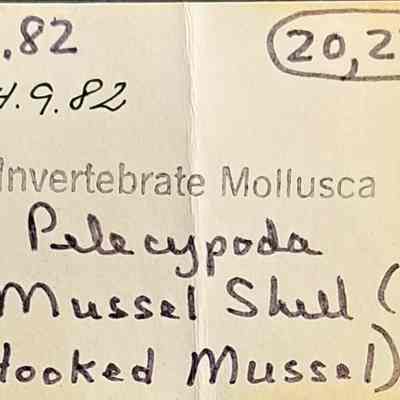 .82
20,2
H.9.82
Invertebrate Mollusca
Pelecypoda
Mussel Shell (
Hooked Mussel)